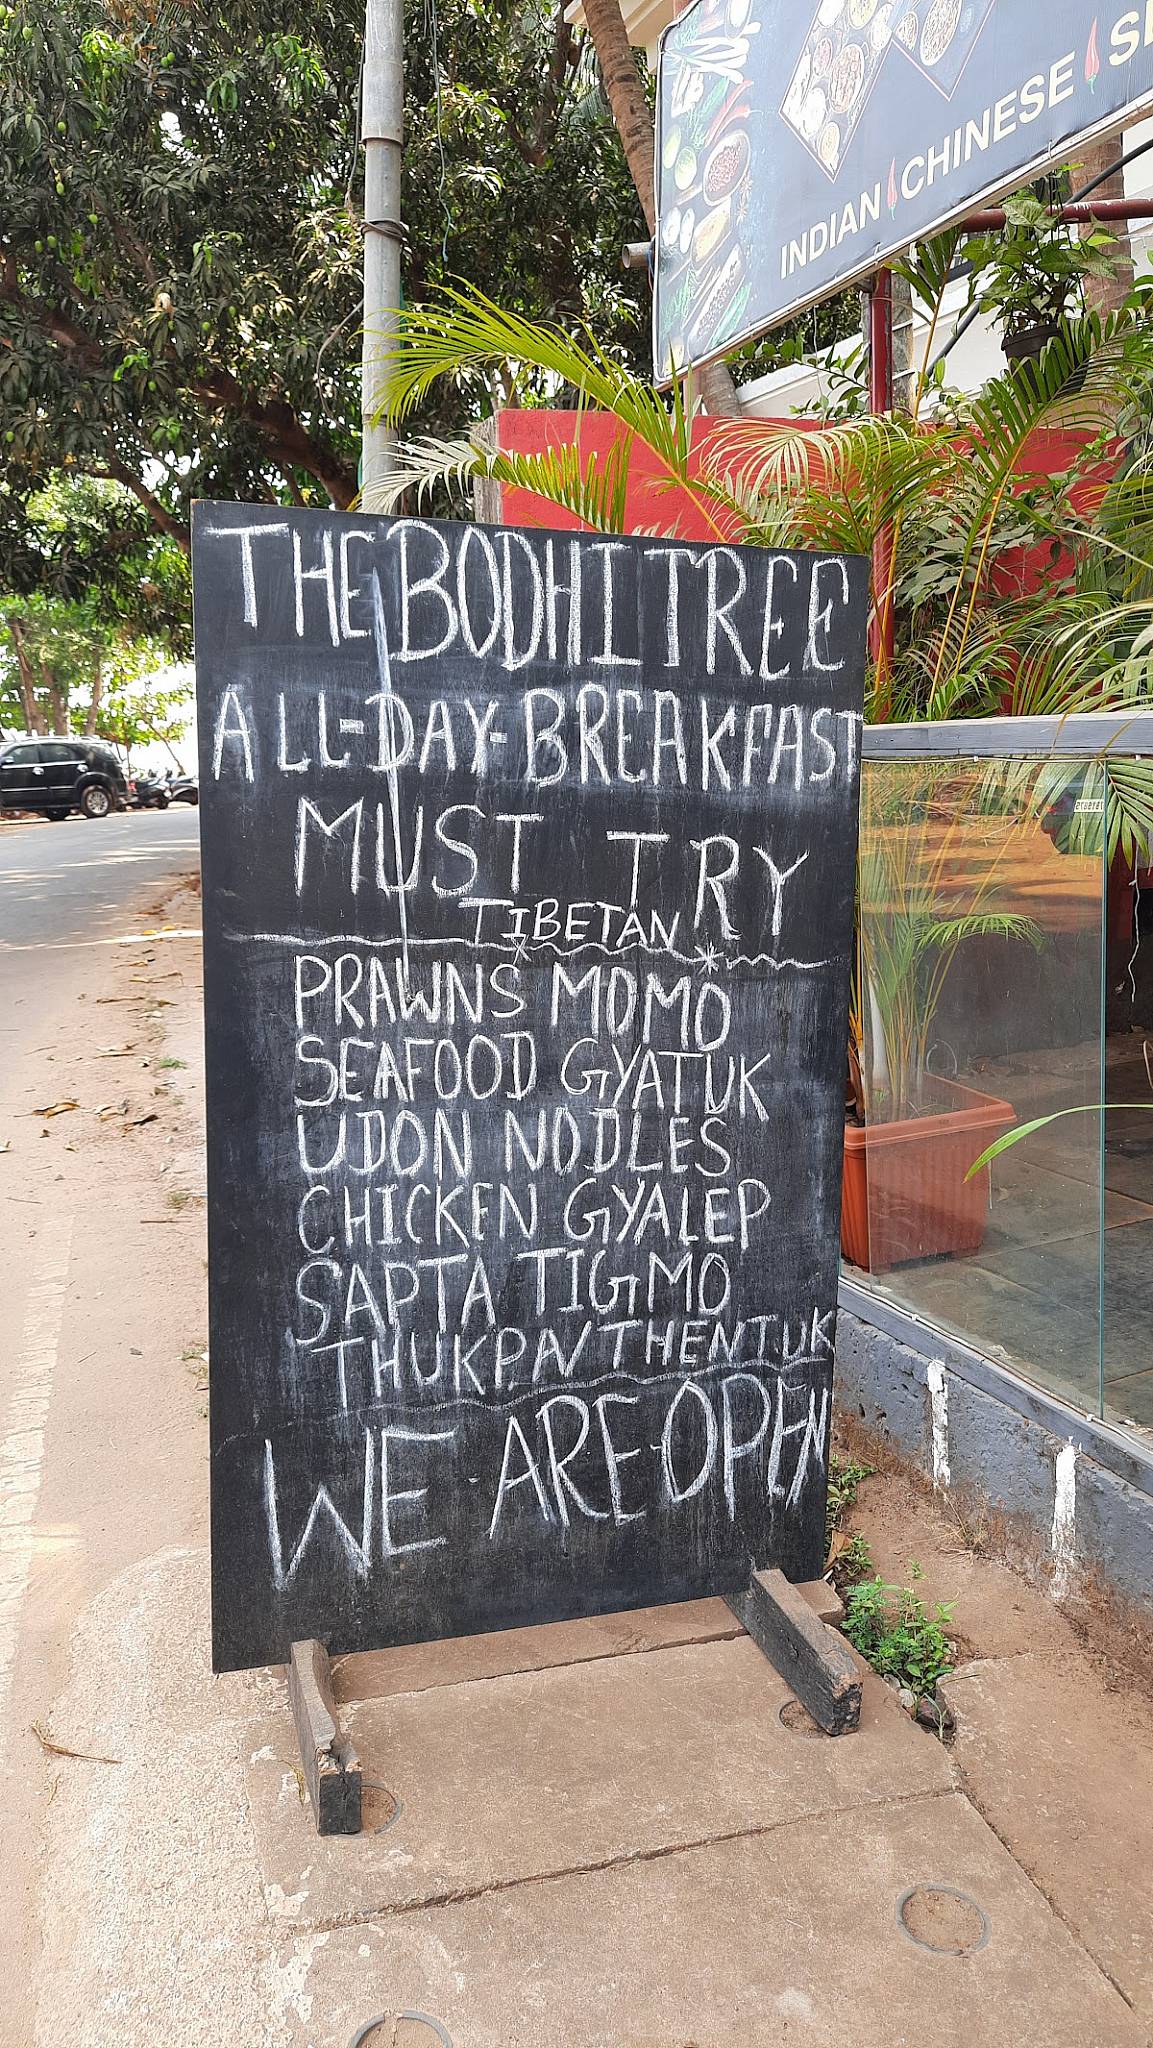 INDIAN CHINESE
THE BODHI TREE
ALL-DAY-BREAKFAST
MUST TRY
TIBETAN
PRAWNS MOMO
SEAFOOD GYATUK
UDON NODLES
CHICKEN GYALEP
SAPTA TIGMO
THUKPA/THENTUK
WE ARE-OPEN